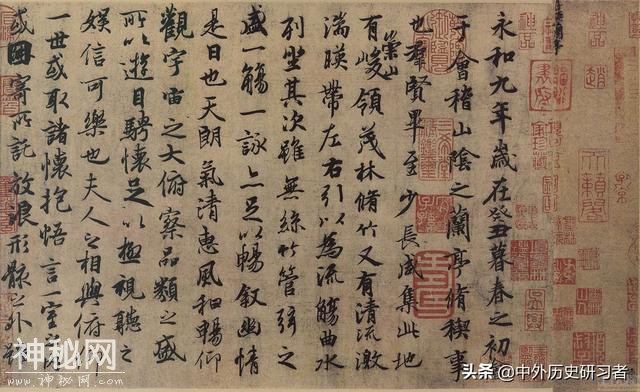 永和九年歲在癸丑暮春之初
于會稽山陰之蘭亭脩禊事
也羣賢畢至少長咸集此地
有崇山峻領茂林脩竹又有清流激
湍暎帶左右引以為流觴曲水
列坐其次雖無絲竹管弦之
盛一觴一詠亦足以暢敘幽情
是日也天朗氣清惠風和暢仰
觀宇宙之大俯察品類之盛
所以遊目騁懷足以極視聽之
娛信可樂也夫人之相與俯
一世或取諸懷抱悟言一室
或因寄所託放浪形骸之外
趙
天籟閣
神秘网
www.神秘网.com
头条 @中外历史研习者